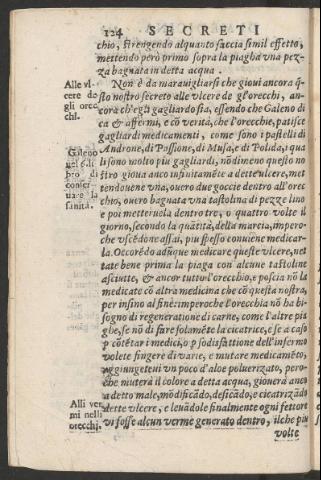 124 SECRETI
chio, stringendo alquanto faccia simil effetto,
mettendo però primo sopra la piagha vna pez-
za bagnata in detta acqua.
Alle vl-
cere de
gli orec
chi.
Non è da marauigliarsi che gioui ancora q̃-
sto nostro secreto alle vlcere de gl'orecchi, an-
cora ch'egli gagliardo sia, essendo che Galeno di
ca & affermi, e cõ verità, che l'orecchie, patisce
gagliardi medicamenti, come sono i pastelli di
Androne, di Passione, di Musa, e di Polida; qua
Galeno
nel 6. li-
bro di
conser-
uare la
sanità.
li sono molto piu gagliardi, nõdimeno questo no
stro gioua anco infinitamẽte a dette vlcere, met
tendouene vna, ouero due goccie dentro all'orec
chio, ouero bagnata vna tastolina di pezze lino
e poi metteruela dentro tre, o quattro volte il
giorno, secondo la quãtità, della marcia, impero-
che vscẽdone assai, piu spesso conuiene medicar-
la. Occorẽdo adũque medicare queste vlcere, net
tate bene prima la piaga con alcune tastoline
asciutte, & ancor tutto l'orecchio, e poscia nõ la
medicate cõ altra medicina che cõ questa nostra,
per insino al fine: imperoche l'orecchia nõ ha bi-
sogno di regeneratione di carne, come l'altre pia
ghe, se nõ di fare solamẽte la cicatrice, e se a caso
p cõtẽtar i medici, o p sodisfattione dell'infermo
volete fingere di varie, e mutare medicamẽto,
aggiungeteui vn poco d'aloe puluerizato, pero-
che muterà il colore a detta acqua, giouerà anco
a detto male, mõdificãdo, desicãdo, e cicatrizãdo
Alli ver
mi nelli
orecchi.
dette vlcere, e leuãdole finalmente ogni fettore
vi fosse alcun verme generato dentro, ilche piu
volte